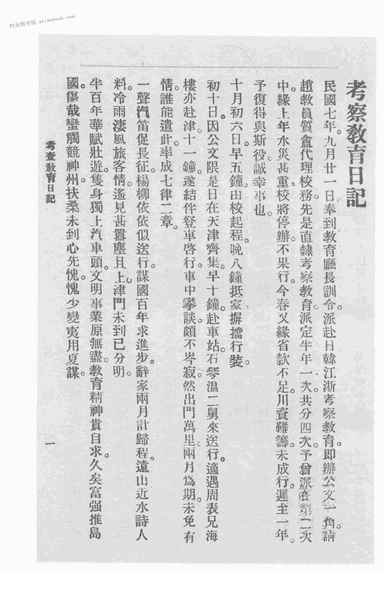 考察敎育日記
民國七年九月廿一日奉到敎育廳長訓令派赴日韓江浙考察敎育卽辦公文一角請
趙敎員質彙代理校務先是直隸考察敎育派定半年一次共分四次予曾派在第二次
中緣上年水災甚重校將停辦不果行今春又緣省款不足川資難籌未成行遲至一年
予復得與斯役誠幸事也
十月初六日早五鐘由校起程晚八鐘抵家摒擋行裝
初十日因公文限是日在天津齊集早十鐘赴車站石攀溫二舅來送行適遇周表兄海
樓亦赴津十一鐘遂結伴登車啓行車中擧談頗不岑寂然出門萬里兩月爲期未免有
情誰能遣此率成七律二章
一聲汽笛促長征楊柳依依似送行謀國百年求進步辭家兩月計歸程遠山近水詩人
料冷雨凄風旅客情遙見甚囂塵且上津門未到已分明
半百年華賦壯遊隻身獨上汽車頭文明事業原無盡敎育精神貴自求久矣富强推島
國傷哉蠻觸競神州扶桑未到心先愧愧少變夷用夏謀
考查敎育日記
一